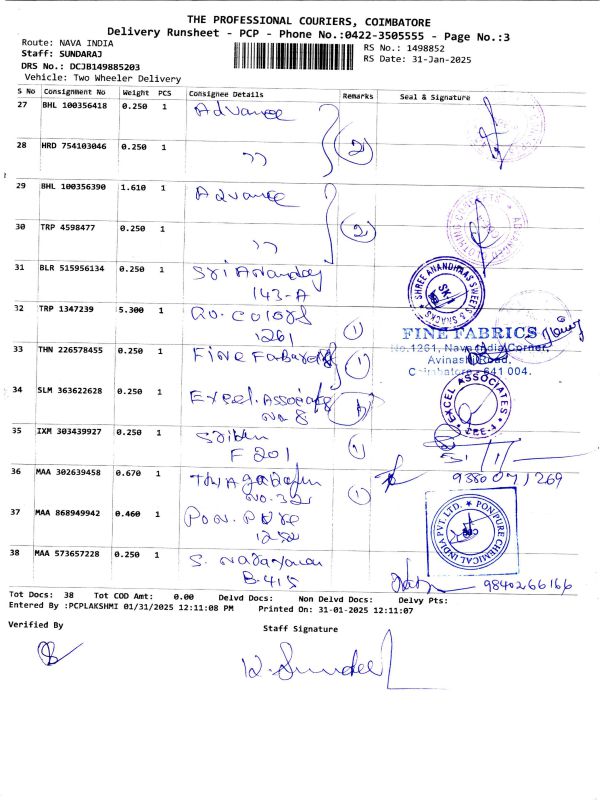 THE PROFESSIONAL COURIERS, COIMBATORE
Delivery Runsheet - PCP - Phone No.:0422-3505555 - Page No.:3
Route: NAVA INDIA
RS No.: 1498852
Staff: SUNDARAJ
RS Date: 31-Jan-2025
DRS No.: DCJB149885203
Vehicle: Two Wheeler Delivery
S No Consignment No Weight PCS Consignee Details Remarks Seal & Signature
27 BHL 100356418 0.250 1 Advance
28 HRD 754103046 0.250 1 " 2
29 BHL 100356390 1.610 1 Advance
30 TRP 4598477 0.250 1 " 2
31 BLR 515956134 0.250 1 Sri Anandaas
143-A
SHREE ANANDHAAS SWEETS & SNACKS
32 TRP 1347239 5.300 1 Colors
1261 1
FINE FABRICS
No.1261, Nava India Corner,
Avinashi Road,
Coimbatore - 641 004.
33 THN 226578455 0.250 1 Fine Fabrics 1
34 SLM 363622628 0.250 1 Excel. Associate
No 8
EXCEL ASSOCIATES
CBE-4
35 IXM 303439927 0.250 1
F 201 1
36 MAA 302639458 0.670 1 Thyagarajan
No. 321 1
9380071269
37 MAA 868949942 0.460 1 Pon. Pure
1252
PONPURE CHEMICAL INDIA PVT LTD.
38 MAA 573657228 0.250 1 S. Narayanan
B-415
9840266166
Tot Docs: 38 Tot COD Amt: 0.00 Delvd Docs: Non Delvd Docs: Delvy Pts:
Entered By :PCPLAKSHMI 01/31/2025 12:11:08 PM Printed On: 31-01-2025 12:11:07
Verified By
Staff Signature